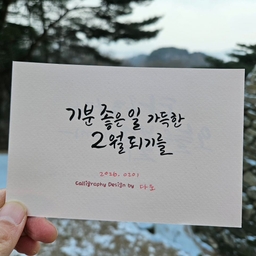 기분 좋은 일 가득한
2월 되기를
Calligraphy Design by